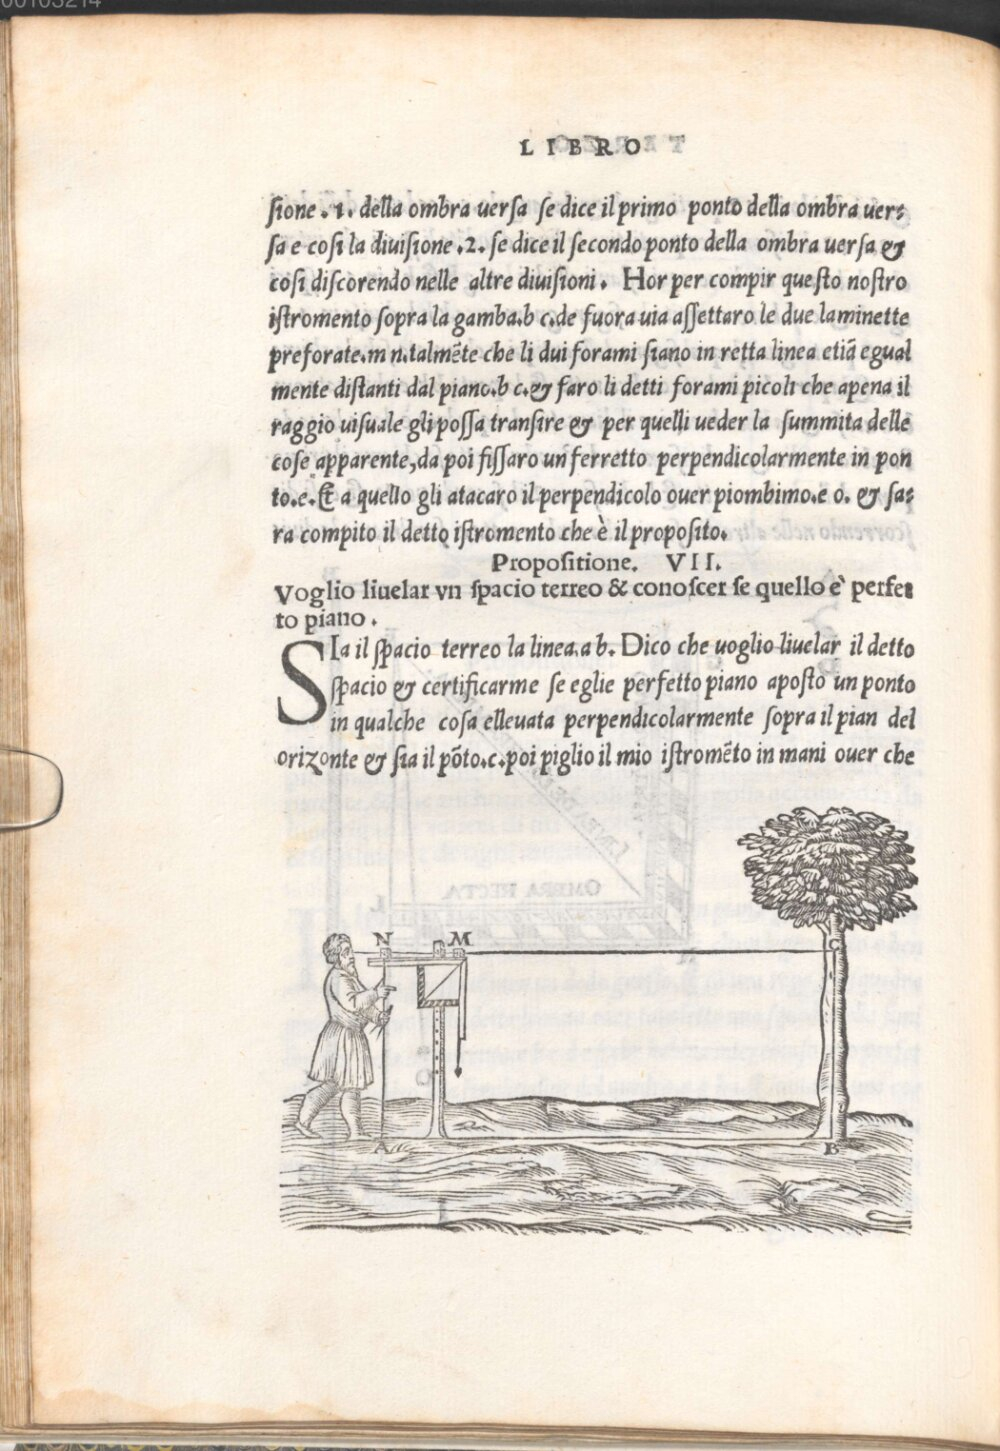 00103214
LIBRO
ſione .1. della ombra uerſa ſe dice il primo ponto della ombra uer⸗
ſa e coſi la diuiſione .2. ſe dice il ſecondo ponto della ombra uerſa &
coſi diſcorendo nelle altre diuiſioni. Hor per compir queſto noſtro
iſtromento ſopra la gamba.b c.de fuora uia aſſettaro le due laminette
preforate.m n.talmẽte che li dui forami ſiano in retta linea etiã egual
mente diſtanti dal piano.b c.& faro li detti forami picoli che apena il
raggio uiſuale gli poſſa tranſire & per quelli ueder la ſummita delle
coſe apparente,da poi fiſſaro un ferretto perpendicolarmente in pon
to.e.Et a quello gli atacaro il perpendicolo ouer piombimo.e o. & ſa⸗
ra compito il detto iſtromento che è il propoſito.
Propoſitione. VII.
Voglio liuelar vn ſpacio terreo & conoſcer ſe quello è perfet
to piano.
SIa il ſpacio terreo la linea.a b. Dico che uoglio liuelar il detto
ſpacio & certificarme ſe eglie perfetto piano apoſto un ponto
in qualche coſa elleuata perpendicolarmente ſopra il pian del
orizonte & ſia il põto.c.poi piglio il mio iſtromẽto in mani ouer che
N M
C
O
A B
OMBRA RECTA
L